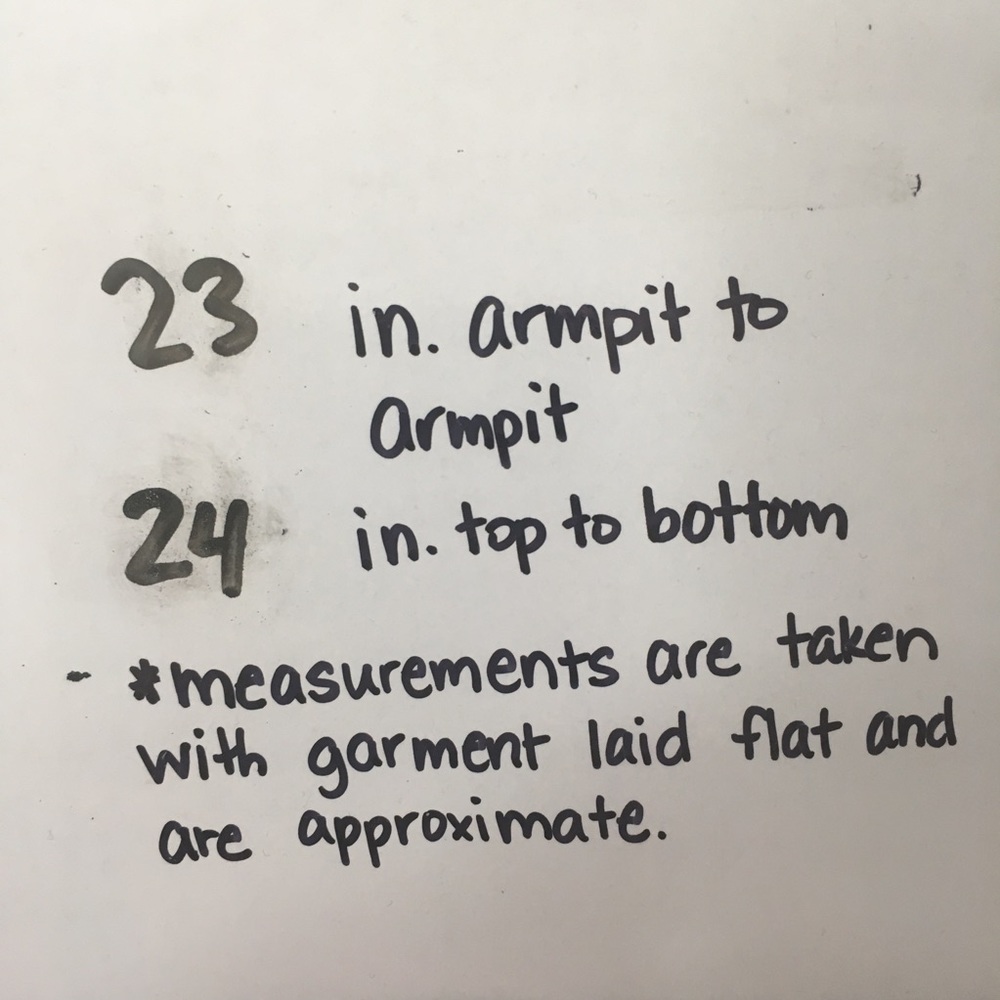 23 in. armpit to
armpit
24 in. top to bottom
*measurements are taken
with garment laid flat and
are approximate.